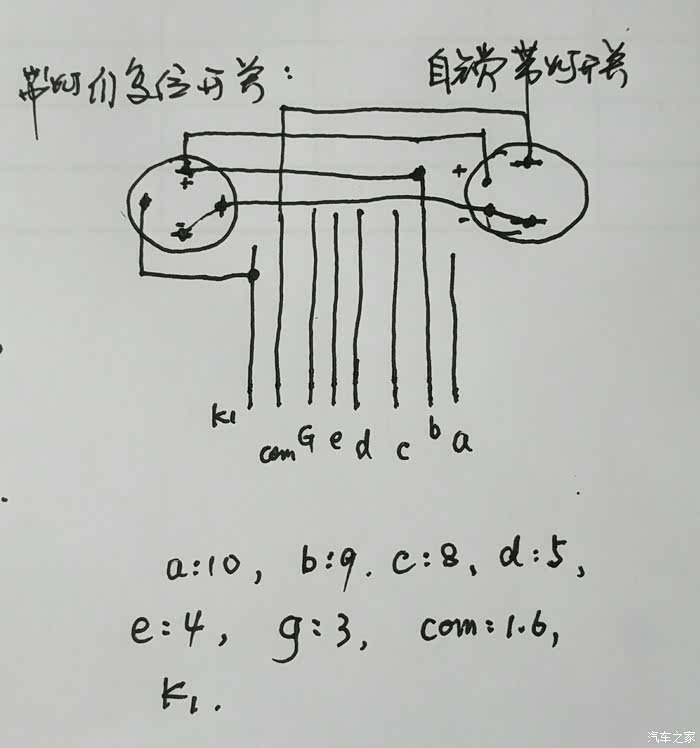 带灯们复位开关：
自锁带灯开关
+ + - + -
K1 com G e d c b a
a:10, b:9. c:8、d:5,
e:4, g:3, com:1.6,
K1.
汽车之家